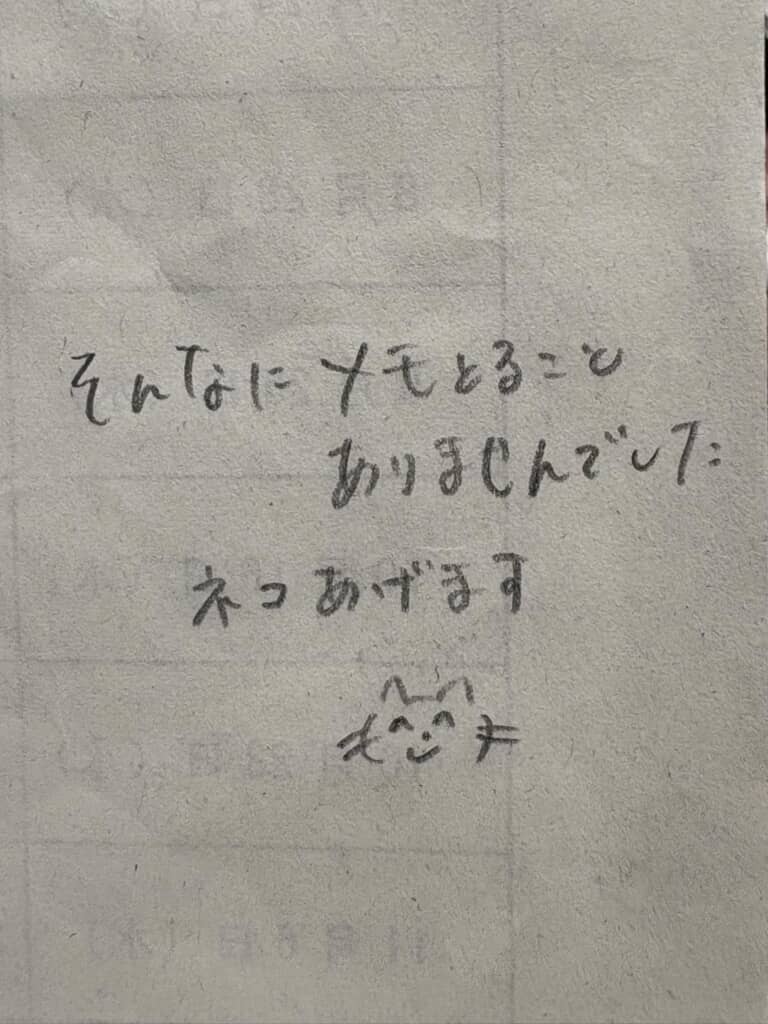 そんなにメモとること
ありませんでした
ネコあげます